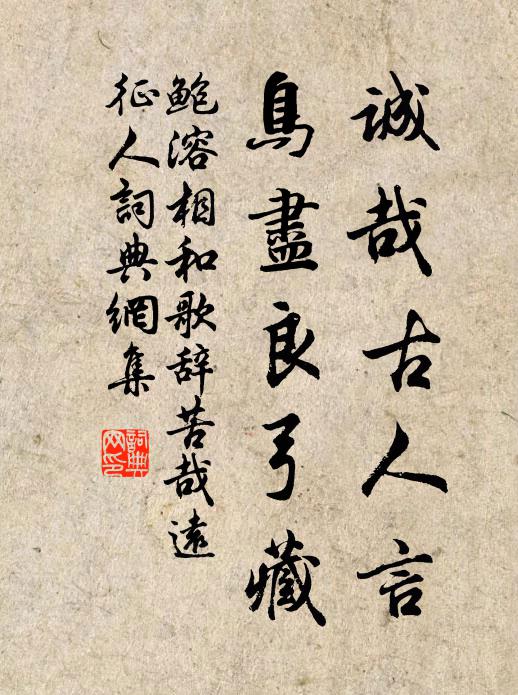 誠哉古人言
鳥盡良弓藏
鮑溶相和歌辞苦哉遠
征人詞典網集
詞典網印